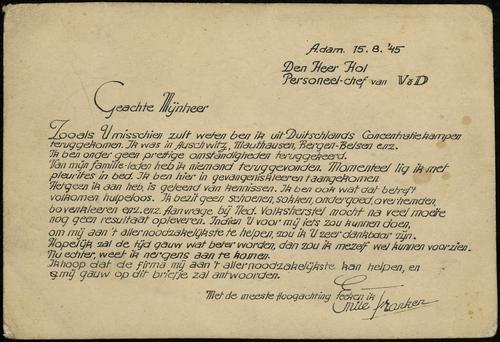 A.dam. 15.8.'45
Den Heer Hol
Personeel-chef van V&D
Geachte Mijnheer
Zooals U misschien zult weten ben ik uit Duitschlands Concentratiekampen
teruggekomen. Ik was in Auschwitz, Mauthausen, Bergen-Belsen enz.
Ik ben onder geen prettige omstandigheden teruggekeerd.
Van mijn familie-leden heb ik niemand teruggevonden. Momenteel lig ik met
pleurites in bed. Ik ben hier in gevangeniskleeren aangekomen
Hetgeen ik aan heb, is geleend van kennissen. Ik ben ook wat dat betreft
volkomen hulpeloos. Ik bezit geen schoenen, sokken, ondergoed, overhemden,
bovenkleeren enz. enz. Aanvrage bij Ned. Volksherstel mocht na veel moeite
nog geen resultaat opleveren. Indien U voor mij iets zou kunnen doen,
om mij aan 't allernoodzakelijkste te helpen, zou ik U zeer dankbaar zijn.
Hopelijk zal de tijd gauw wat beter worden, dan zou ik mezelf wel kunnen voorzien.
Nu echter, weet ik nergens aan te komen.
Ik hoop dat de firma mij aan 't allernoodzakelijkste kan helpen, en
U mij gauw op dit briefje zal antwoorden.
Met de meeste Hoogachting teeken ik
Emile Franken